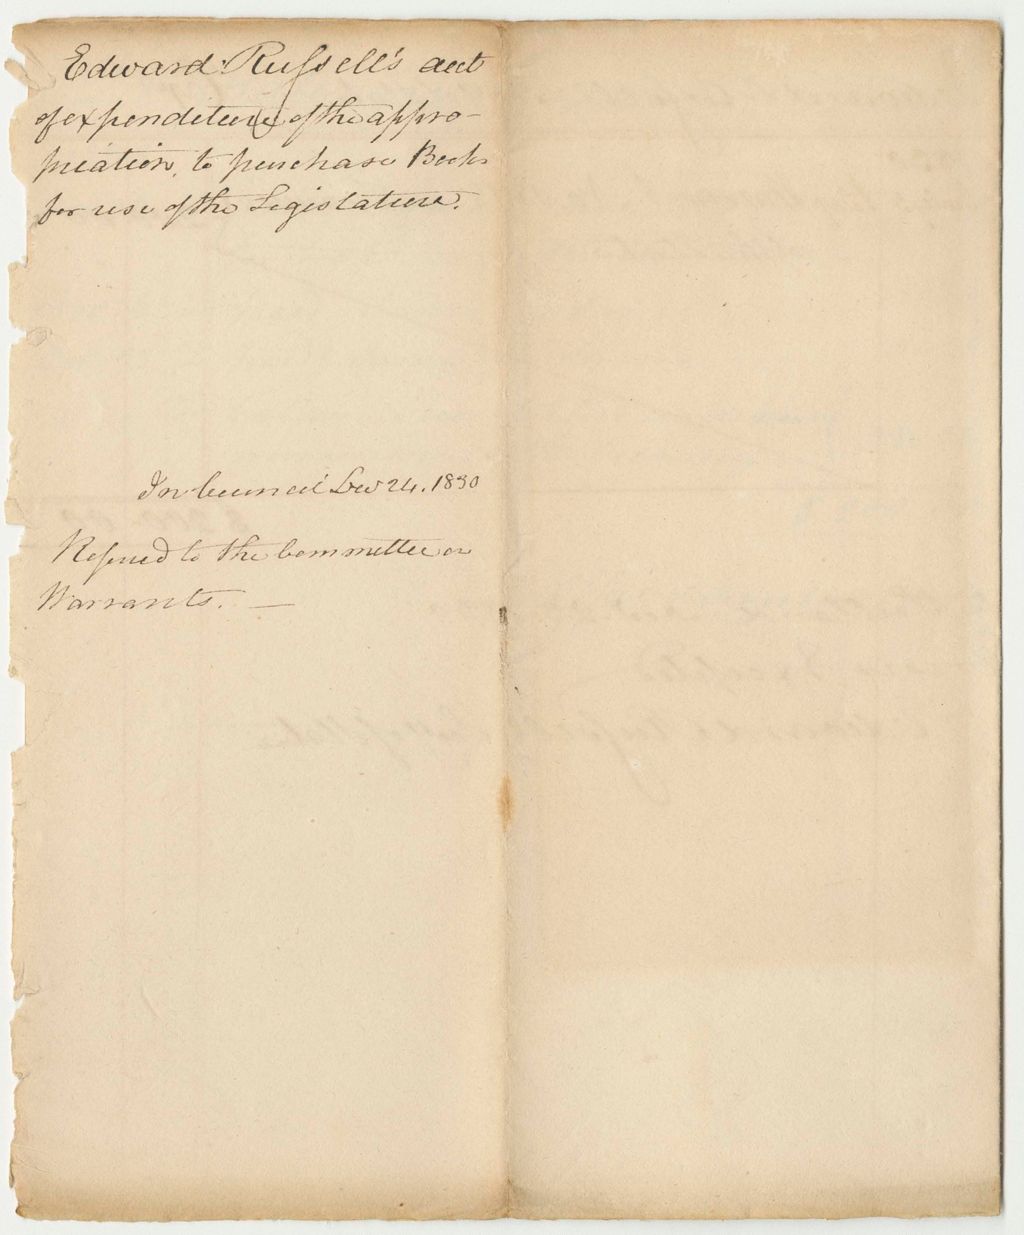 Edward Russell's acct
of expenditure of the appro-
priation, to purchase Books
for use of the Legislature.
In Council Dec 24, 1830
Refered to the Committee on
Warrants. —